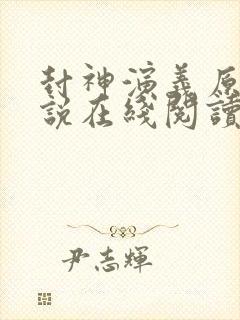 封神演義原
說在綫閱讀
尹志輝